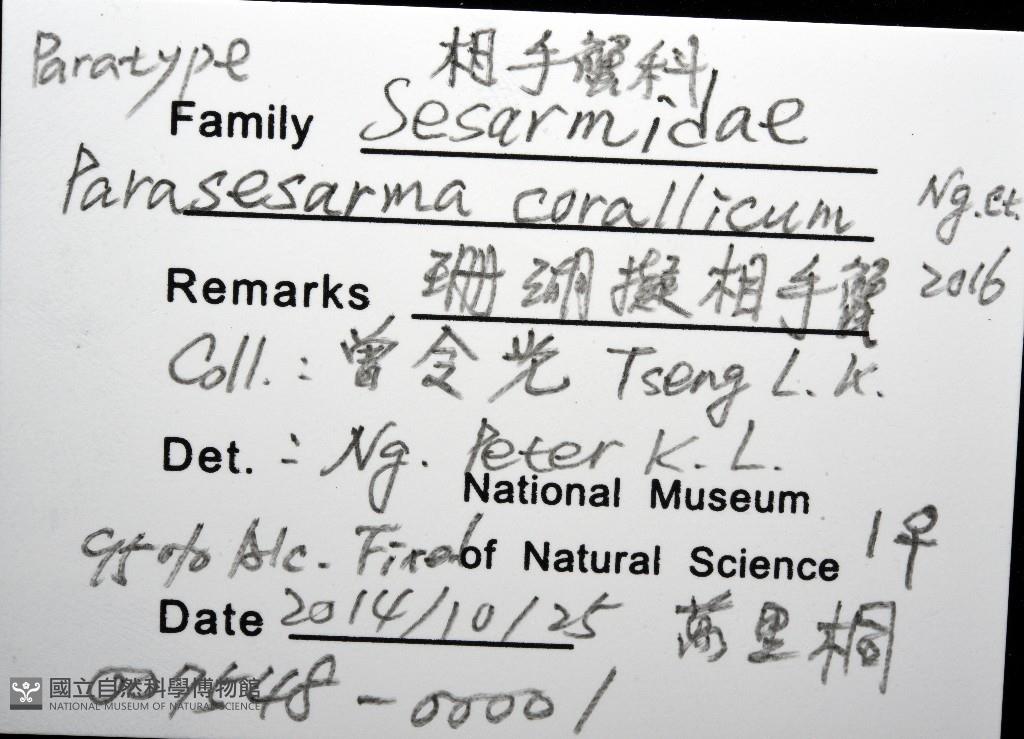 Paratype 相手蟹科
Family Sesarmidae
Parasesarma corallicum Ng. et.
Remarks 珊瑚擬相手蟹 2016
Coll.: 曾令光 Tseng L. K.
Det. : Ng. Peter K. L.
National Museum
95% Alc. Fixed of Natural Science 1♀
Date 2014/10/25 萬里桐
國立自然科學博物館
NATIONAL MUSEUM OF NATURAL SCIENCE
-00001